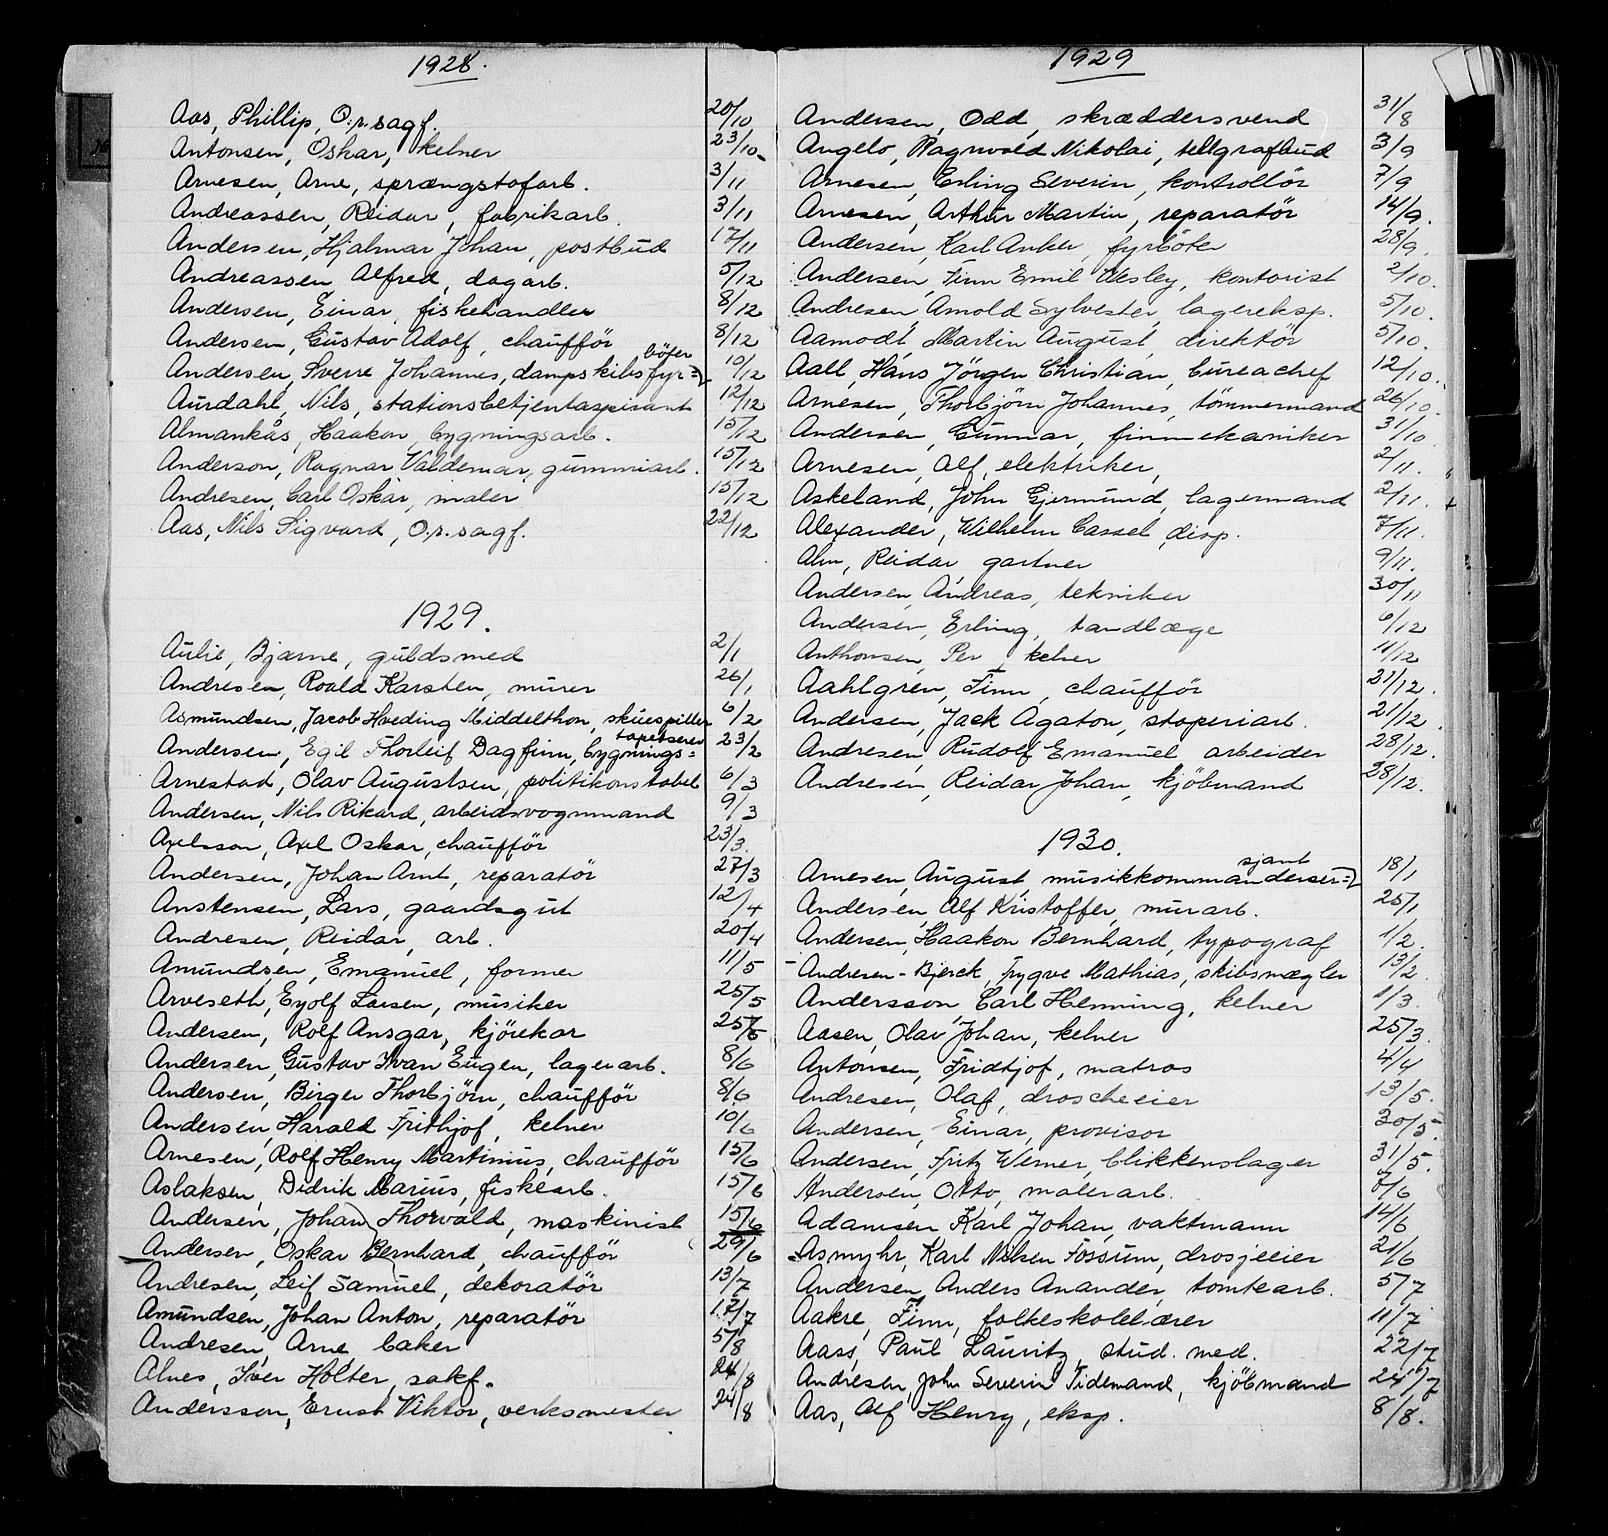 1928.
Aas, Phillip, O.r.sagf. 20/10
Antonsen, Oskar, kelner 23/10
Arnesen, Arne, sprængstofarb. 3/11
Andreassen, Reidar, fabrikarb. 3/11
Andersen, Hjalmar Johan, postbud 17/11
Andreassen Alfred, dagarb. 5/12
Andersen, Einar, fiskehandler 8/12
Andersen, Gustav Adolf, chaufför 8/12
Andersen, Sverre Johannes, dampskibsfyr= böter 10/12
Aurdahl, Nils, stationsbetjentaspirant 12/12
Almankås, Haakon, bygningsarb. 15/12
Anderson, Ragnar Valdemar, gummiarb. 15/12
Andresen, Carl Oskar, maler 15/12
Aas, Nils Sigvard, O.r.sagf. 22/12
1929.
Aulie, Bjarne, guldsmed 2/1
Andresen, Roald Karsten, murer 26/1
Asmundsen, Jacob Hveding Middelthon, skuespiller 6/2
Andersen, Egil Thorleif Dagfinn, bygnings= tapetserer 23/2
Arnestad, Olav Augustsen, politikonstabel 6/3
Andersen, Nils Rikard, arbeidsvognmand 9/3
Axelsson, Axel Oskar, chaufför 23/3.
Andersen, Johan Arnt, reparatör 27/3
Anstensen, Lars, gaardsgut 12/4
Andresen, Reidar, arb. 20/4
Amundsen, Emanuel, former 11/5
Arveseth, Eyolf Larsen, musiker 25/5
Andersen, Rolf Ansgar, kjörekar 25/5
Andersen, Gustav Ivan Eugen, lagerarb. 8/6
Andersen, Birger Thorbjörn, chaufför 8/6
Andersen, Harald Frithjof, kelner 10/6
Arnesen, Rolf Henry Martinius, chaufför 15/6
Aslaksen, Didrik Marius, fiskearb. 15/6
Andersen, Johan Thorvald, maskinist 15/6
Andersen, Oskar Bernhard, chaufför 29/6
Andresen, Leif Samuel, dekoratör 13/7
Amundsen, Johan Anton, reparatör 17/7
Andresen, Arne baker 5/8
Alnes, Iver Holter, sakf. 24/8
Andersson, Ernst Viktor, verksmester 24/8
1929
Andersen, Odd, skræddersvend 31/8
Angelo, Ragnvald Nikolai, tellgrafbud 3/9
Arnesen, Erling Severin, kontrollör 7/9
Arnesen, Arthur Martin, reparatör 14/9.
Andersen, Karl Anker, fyrböter 28/9.
Andersen, Finn Emil Wesley, kontorist 2/10.
Andresen, Arnold Sylvester, lagereksp. 5/10.
Aamodt, Martin August, direktör 5/10.
Aall, Hans Jörgen Christian, bureachef 12/10.
Arnesen, Thorbjörn Johannes, tömmermand 26/10.
Andersen, Gunnar, finmekaniker 31/10
Arnesen, Alf, elektriker, 2/11.
Askeland, John Gjermund, lagermand 2/11.
Alexander, Wilhelm Cassel, disp. 7/11.
Alm, Reidar gartner 9/11.
Andersen, Andreas, tekniker 30/11
Andersen, Erling, tandlæge 6/12
Anthonsen, Per, kelner 11/12
Aahlgren, Finn, chaufför 21/12.
Andersen, Jack Agaton, stoperiarb. 21/12.
Andresen, Rudolf Emanuel arbeider 28/12.
Andresen, Reidar Johan, kjöbmand 28/12.
1930.
Arnesen, August, musikkommandersers= sjant 18/1
Andersen, Alf Kristoffer, murarb. 25/1
Andersen, Haakon Bernhard, typograf 1/2.
Andresen-Bjerck, Trygve Mathias, skibsmægler 13/2
Andersson, Carl Henning, kelner 1/3.
Aasen, Olav Johan, kelner 25/3
Antonsen, Fridtjof, matros 4/4
Andresen, Olaf, droscheeier 13/5.
Andersen, Einar, provisor 30/5.
Andersen, Fritz Werner, blikkenslager 31/5.
Andersen, Otto, malerarb. 7/6
Adamsen Karl Johan, vaktmann 14/6
Asmyhr, Karl Nilsen Fossum, drosjeeier 21/6
Andersen, Anders Anander, tomtearb. 5/7
Aakre, Finn, folkeskolelærer 11/7
Aass, Paul Lauritz, stud. med. 22/7
Andresen, John Severin Tidemand, kjöbmand 24/7
Aas, Alf Henry, eksp. 8/8.